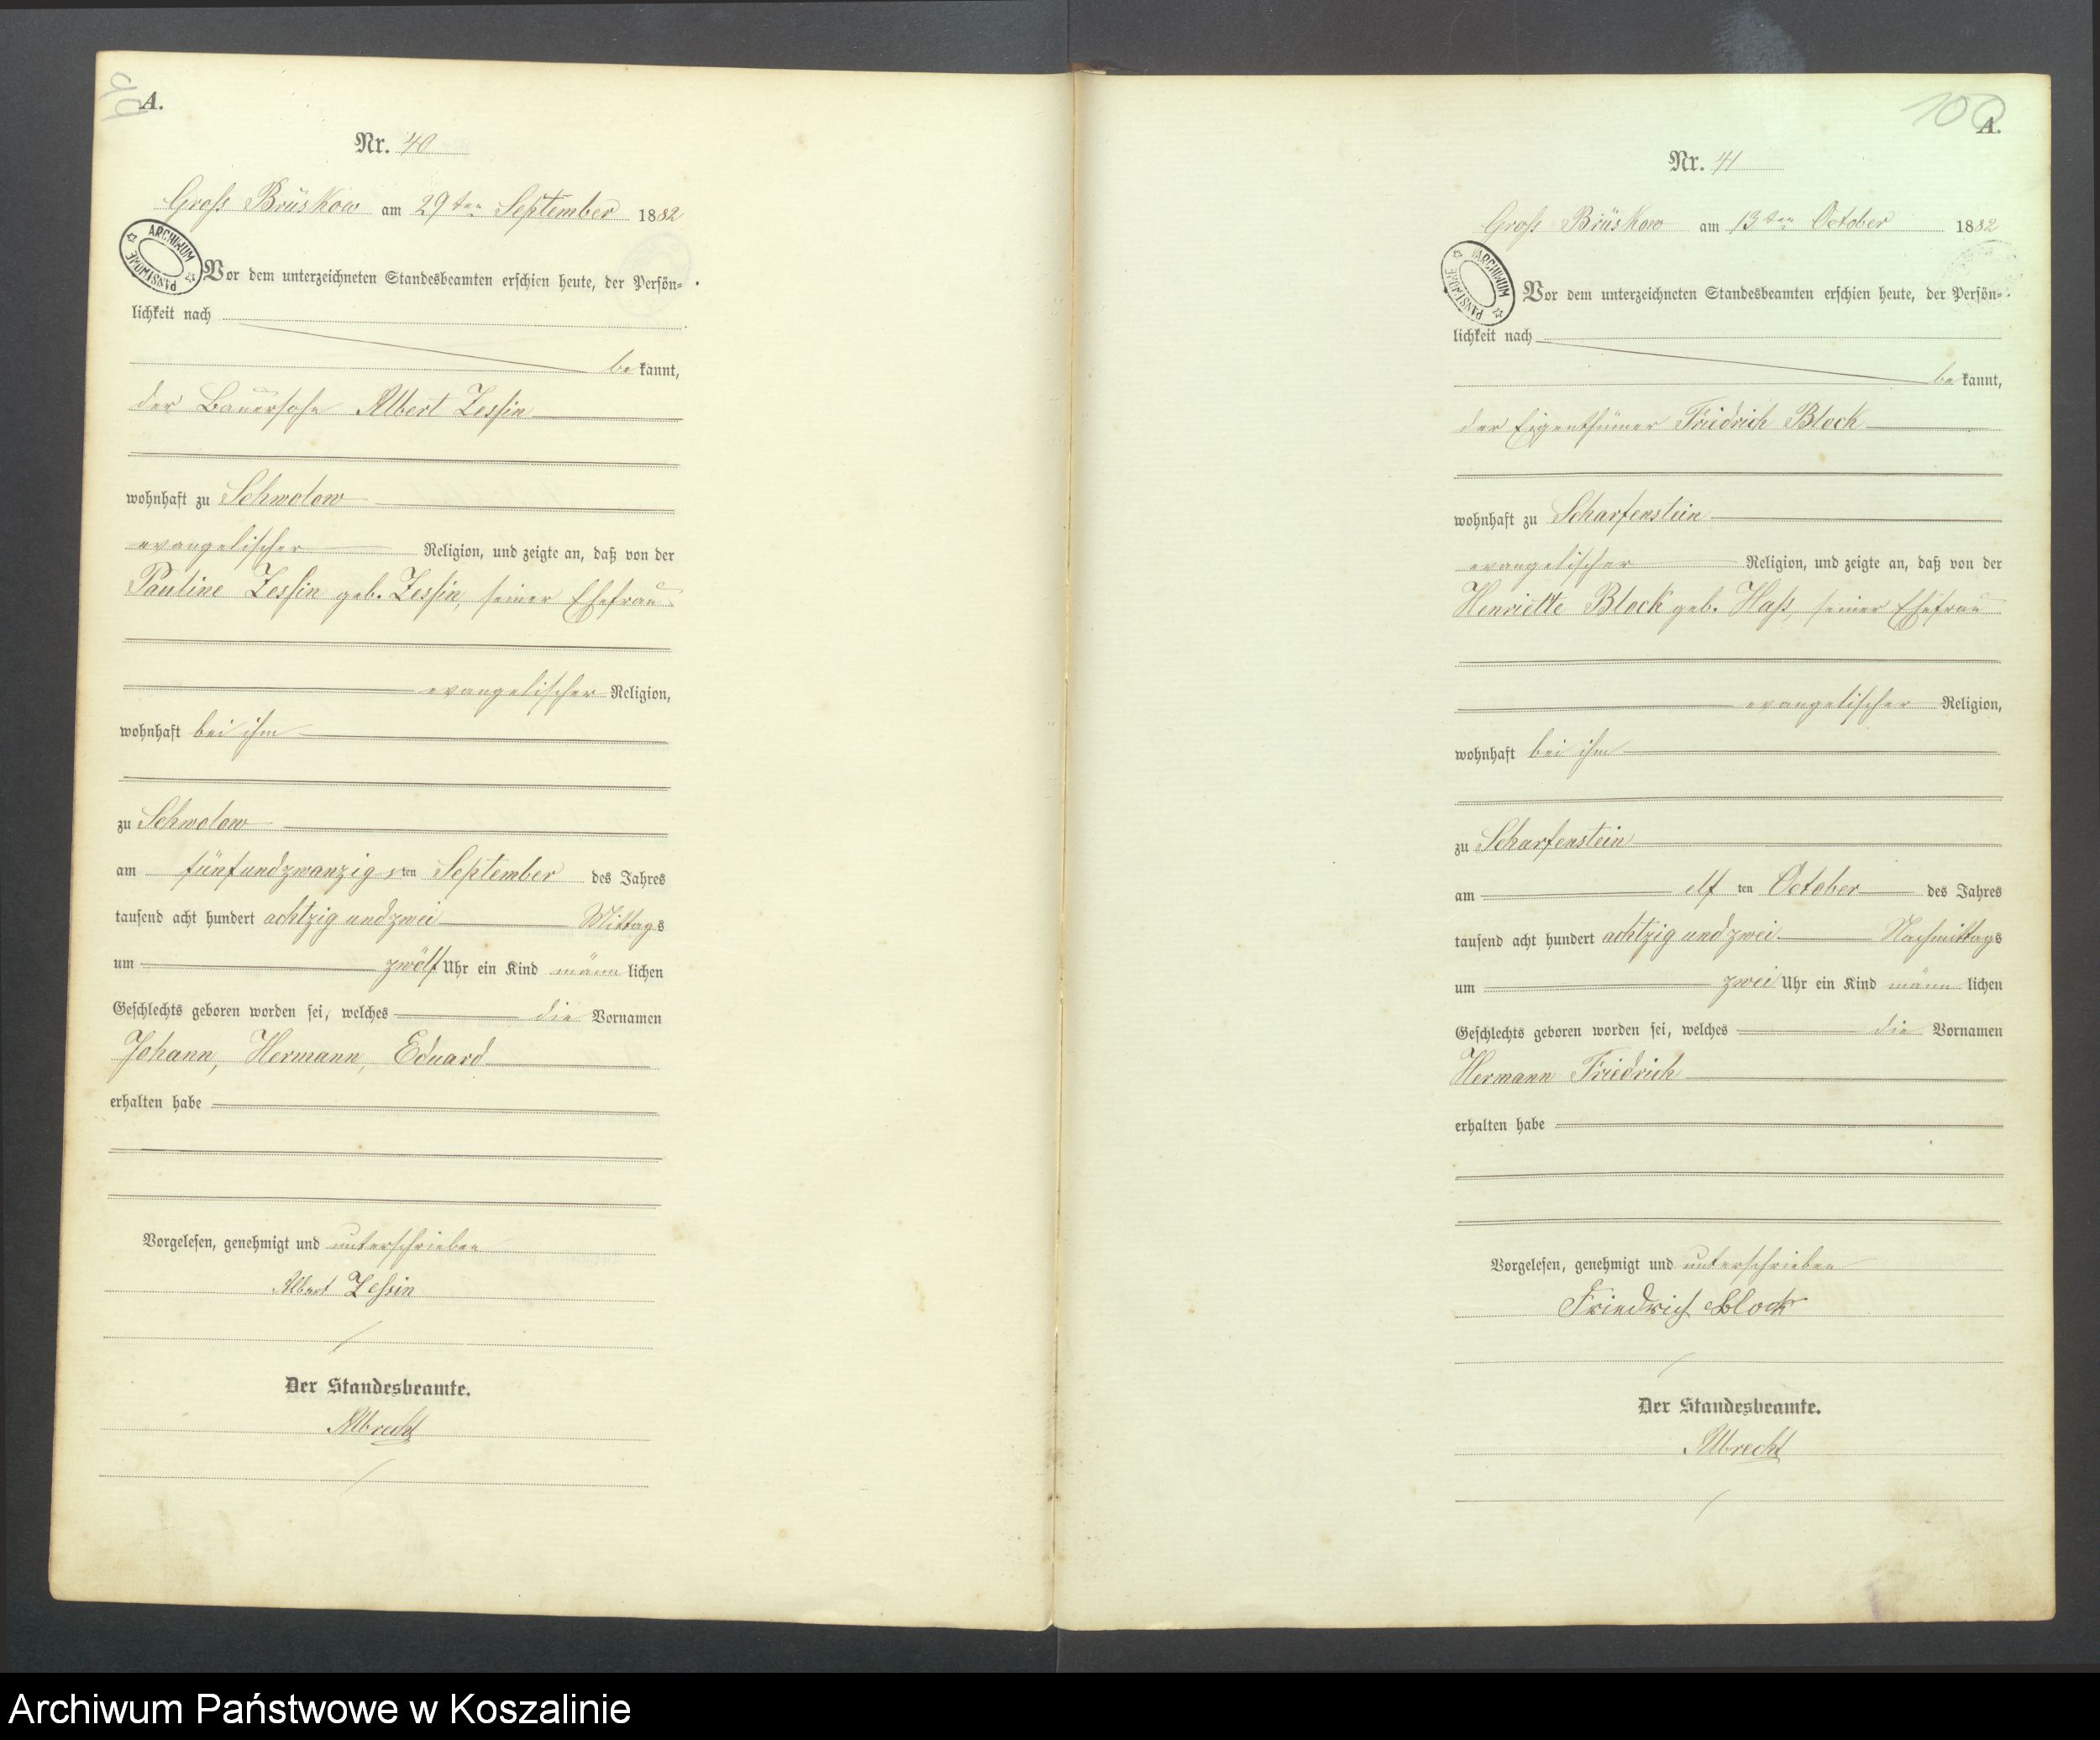 99
A.
Nr. 40
Groß Brüskow am 29ten September 1882
ARCHIWUM PAŃSTWOWE
Vor dem unterzeichneten Standesbeamten erschien heute, der Persön-
lichkeit nach
be kannt,
der Bauersohn Albert Zessin
wohnhaft zu Schwolow
evangelischer Religion, und zeigte an, daß von der
Pauline Zessin geb. Zessin, seiner Ehefrau
evangelischer Religion,
wohnhaft bei ihm
zu Schwolow
am fünfundzwanzigs ten September des Jahres
tausend acht hundert achtzig und zwei Mittags
um zwölf Uhr ein Kind männ lichen
Geschlechts geboren worden sei, welches die Vornamen
Johann, Hermann, Eduard
erhalten habe
Vorgelesen, genehmigt und unterschrieben
Albert Zessin
Der Standesbeamte.
Albrecht
100
A.
Nr. 41
Groß Brüskow am 13ten October 1882
ARCHIWUM PAŃSTWOWE
Vor dem unterzeichneten Standesbeamten erschien heute, der Persön-
lichkeit nach
be kannt,
der Eigenthümer Friedrich Block
wohnhaft zu Scharfenstein
evangelischer Religion, und zeigte an, daß von der
Henriette Block geb. Haß, seiner Ehefrau
evangelischer Religion,
wohnhaft bei ihm
zu Scharfenstein
am elf ten October des Jahres
tausend acht hundert achtzig und zwei Nachmittags
um zwei Uhr ein Kind männ lichen
Geschlechts geboren worden sei, welches die Vornamen
Hermann Friedrich
erhalten habe
Vorgelesen, genehmigt und unterschrieben
Friedrich Block
Der Standesbeamte.
Albrecht
Archiwum Państwowe w Koszalinie